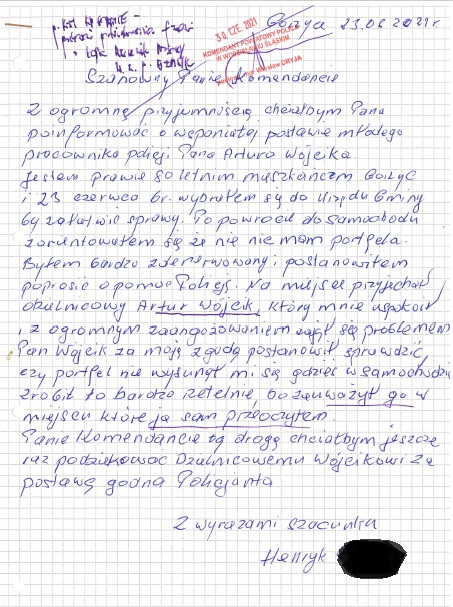 30. CZE. 2021
Gorzyce 23.06 2021 r.
KOMENDANT POWIATOWY POLICJI
W WODZISŁAWIU ŚLĄSKIM
Szanowny Panie Komendancie
Z ogromną przyjemnością chciałbym Pana
poinformować o wspaniałej postawie młodego
pracownika policji Pana Artura Wójcika.
Jestem prawie 80 letnim mieszkańcem Gorzyc
i 23 czerwca br. wybrałem się do Urzędu Gminy
by załatwić sprawy. Po powrocie do samochodu
zorientowałem się że nie nie mam portfela.
Byłem bardzo zdenerwowany i postanowiłem
poprosić o pomoc Policję. Na miejsce przyjechał
dzielnicowy Artur Wójcik, który mnie uspokoił
i z ogromnym zaangażowaniem zajął się problemem
Pan Wójcik za moją zgodą postanowił sprawdzić,
czy portfel nie wysunął mi się gdzieś w samochodzie
zrobił to bardzo rzetelnie, bo zauważył go w
miejscu które ja sam przeoczyłem.
Panie Komendancie tą drogą chciałbym jeszcze
raz podziękować Dzielnicowemu Wójcikowi za
postawę godną Policjanta
Z wyrazami szacunku
Henryk